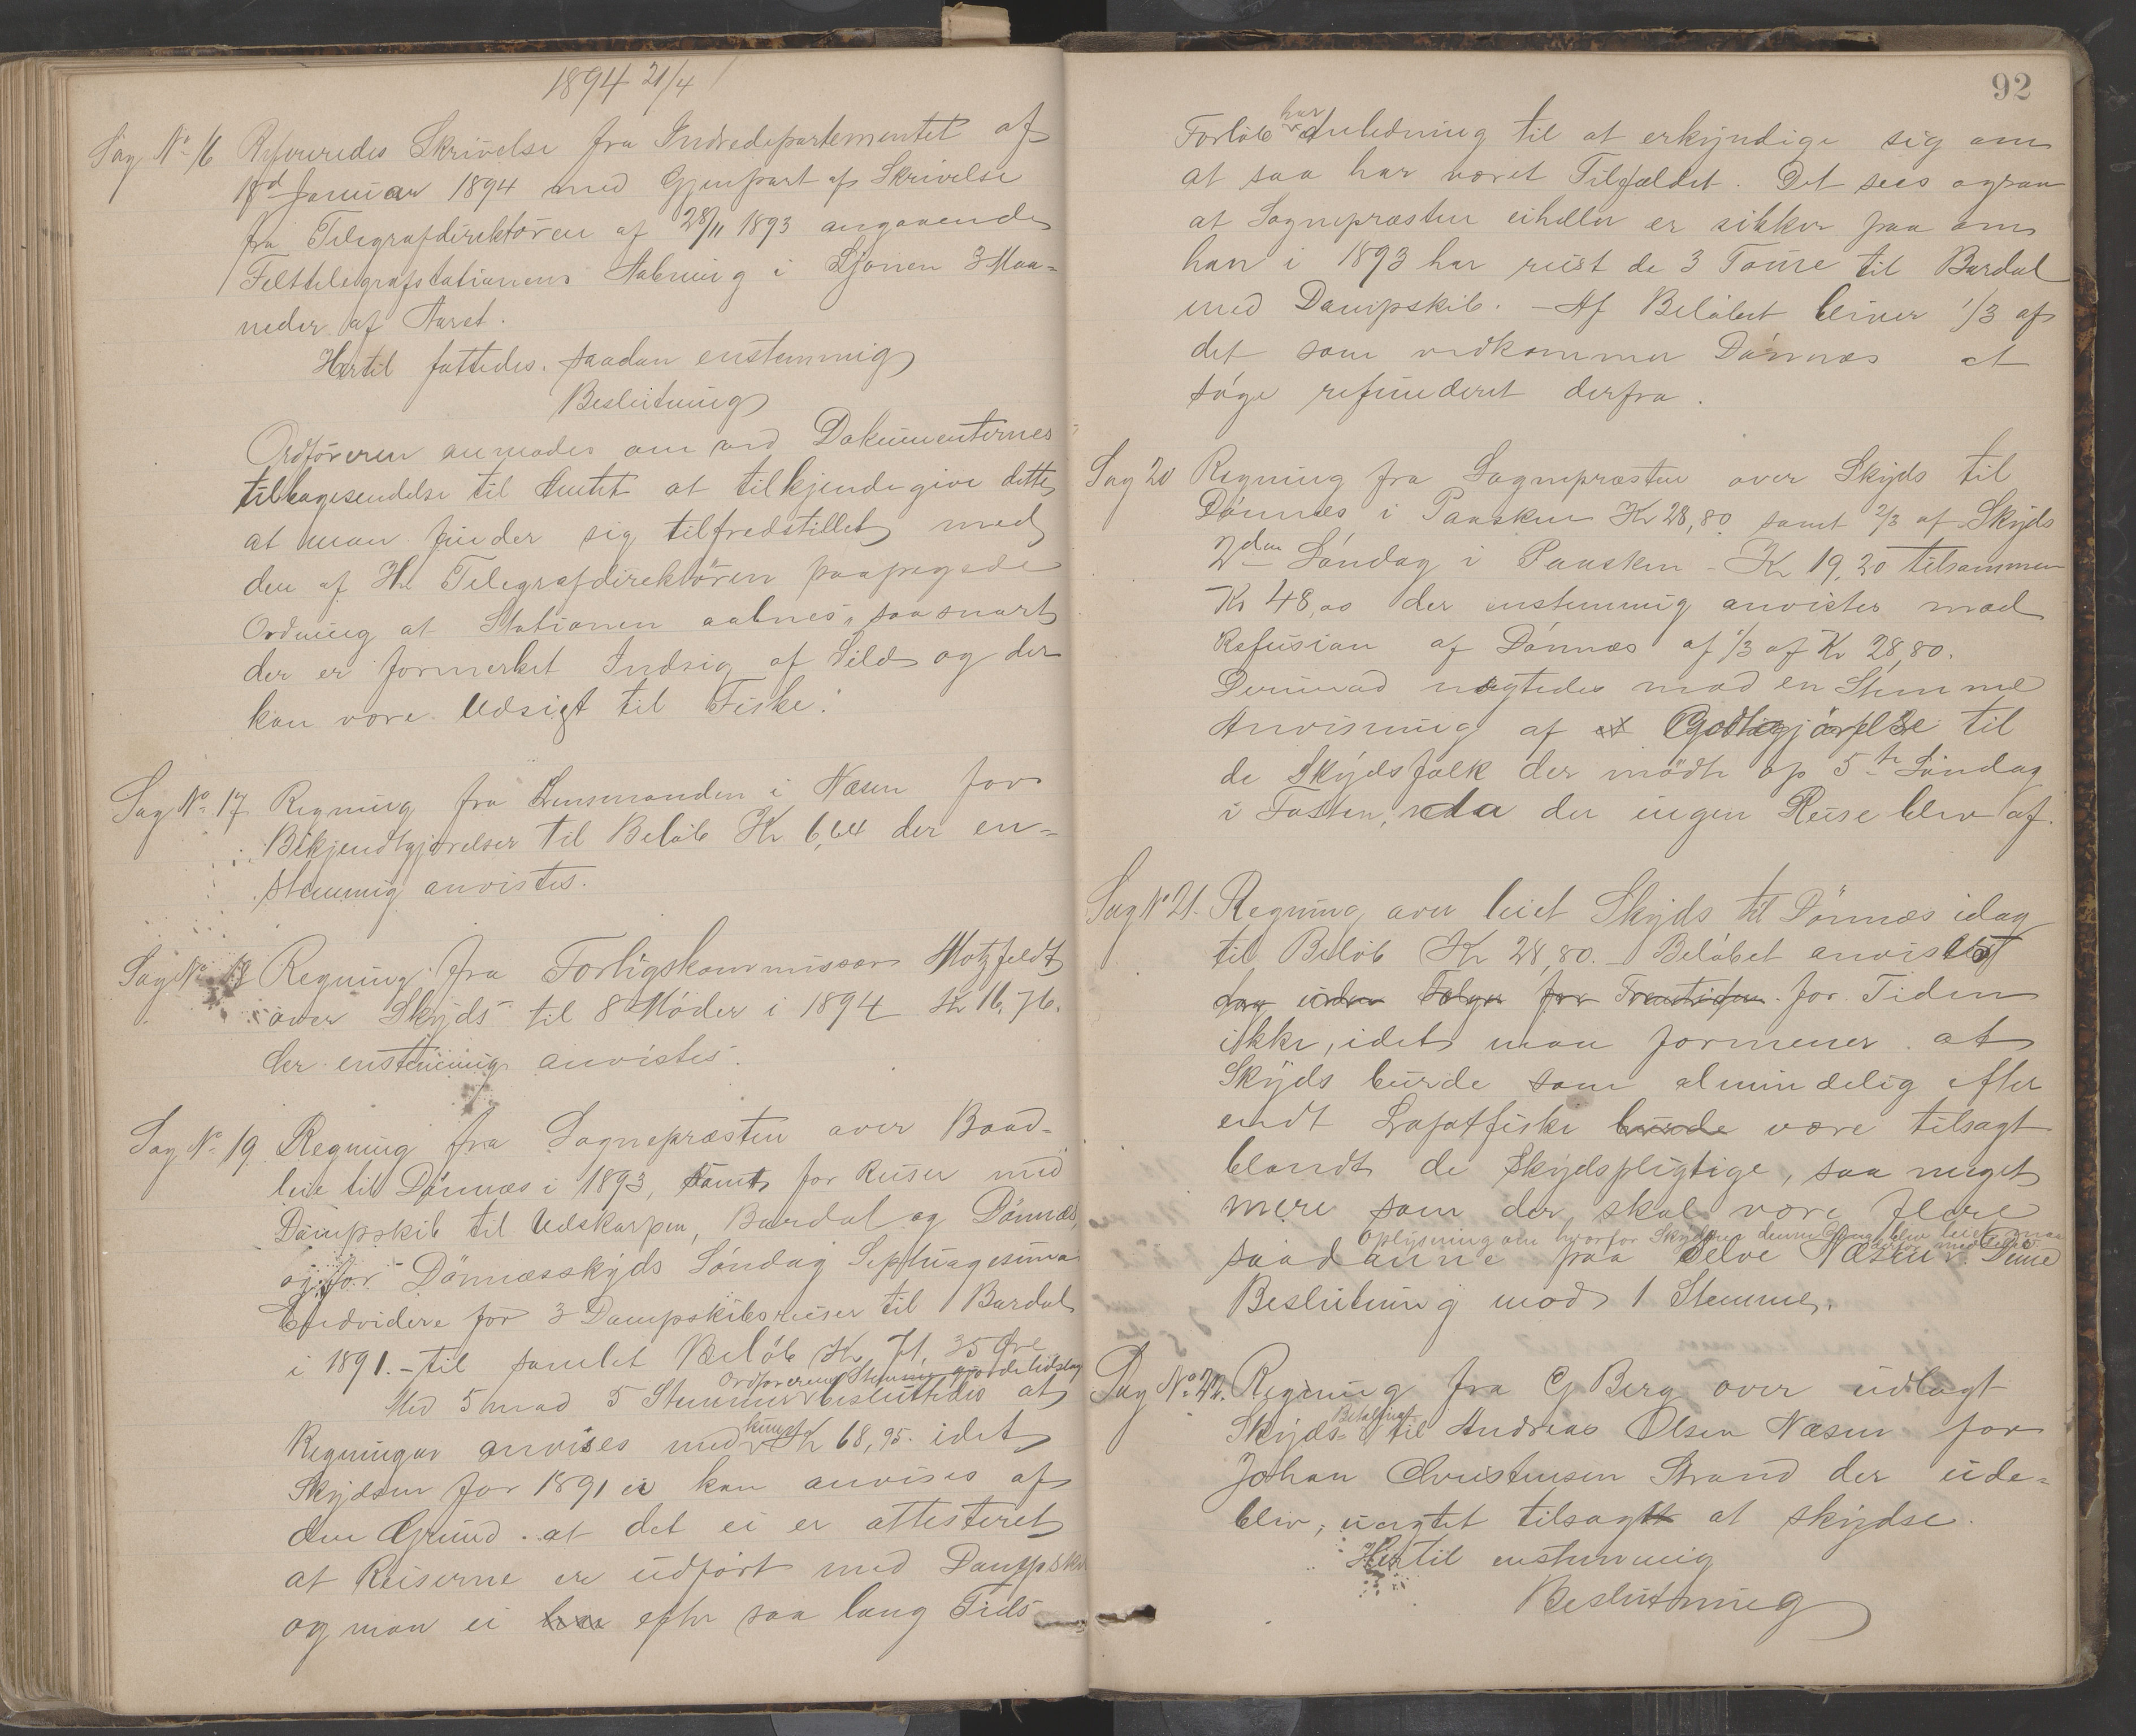 1894 21/4
Sag No 16 Refereredes Skrivelse fra Indredepartementet af
18d Januar 1894 med Gjenpart af Skrivelse
fra Telegrafdirektören af 28/11 1893 angaaende
Felttelegrafstationens Aabning i Sjonen 3 Maa-
neder af Aaret.
Hertil fattedes saadan enstemmig
Beslutning
Ordföreren anmodes om ved Dokumenternes
tilbagesendelse til Amtet at tilkjendegive dette
at man finder sig tilfredstillet med
den af Hr Telegrafdirektören paapegede
Ordning at Stationen aabnes, saasnart
der er formerket Indsig af Sild og der
kan være Udsigt til Fiske.
Sag No 17 Regning fra Lensmanden i Næsen for
Bekjendtgjörelser til Beløb Kr 6,64 der en-
stemmig anvistes.
Sag No 18 Regning fra Forligskommissær Motzfeldt
over Skyds til 8 Möder i 1894 Kr 16,76.
der enstemmig anvistes.
Sag No 19 Regning fra Sognepræsten over Baad-
leie til Dönnæs i 1893, samt for Reiser med
Dampskib til Udskarpen, Bardal og Dönnæs,
og for Dönnæsskyds Söndag Septuagesima
Endvidere for 3 Dampskibsreiser til Bardal
i 1891. - til samlet Beløb Kr 71, 35 Øre
Ordförerens Stemme gjorde Udslag
Med 5 mod 5 Stemmer besluttedes at
Regningen anvises med kuns Kr 68,95. idet
Skydsen for 1891 ei kan anvises af
den Grund at det ei er attesteret
at Reiserne er udført med Dampskib
og man ei har efter saa lang Tids
92
Forløb har Anledning til at erkyndige sig om
at saa har været Tilfældet. Det sees ogsaa
at Sognepræsten eiheller er sikker paa om
han i 1893 har reist de 3 Toure til Bardal
med Dampskib. - Af Beløbet bliver 1/3 af
det som vedkommer Dönnæs at
söge refunderet derfra.
Sag 20 Regning fra Sognepræsten over Skyds til
Dönnæs i Paasken Kr 28,80 samt 2/3 af Skyds
2den Söndag i Paasken - Kr 19,20 tilsammen
Kr 48,00 der enstemmig anvistes mod
Refusion af Dönnæs af 1/3 af Kr 28,80.
Derimod nægtedes mod en Stemme
Anvisning af et Godtgjörelse til
de Skydsfolk der mödte op 5te Söndag
i Fasten, da der ingen Reise blev af.
Sag No 21. Regning over leiet Skyds til Dönnæs idag
til Beløb Kr 28,80. - Beløbet anvistes
dog uden Følger for Fremtiden for Tiden
ikke, idet man formener at
Skyds burde som almindelig efter
endt Lofotfiske burde være tilsagt
blandt de Skydspligtige, saa meget
mere som der skal være flere
Oplysning om hvorfor Skydsen denne Gang blev leiet maa
derfor meddeles
saadanne paa selve Næsen. Denne
Beslutning mod 1 Stemme.
Sag No 22. Regning fra C Berg over udlagt
Betaling
Skyds til Andreas Olsen Næsen for
Johan Christensen Strand der ude-
blev, uagtet tilsagt at skydse.
Hertil enstemmig
Beslutning